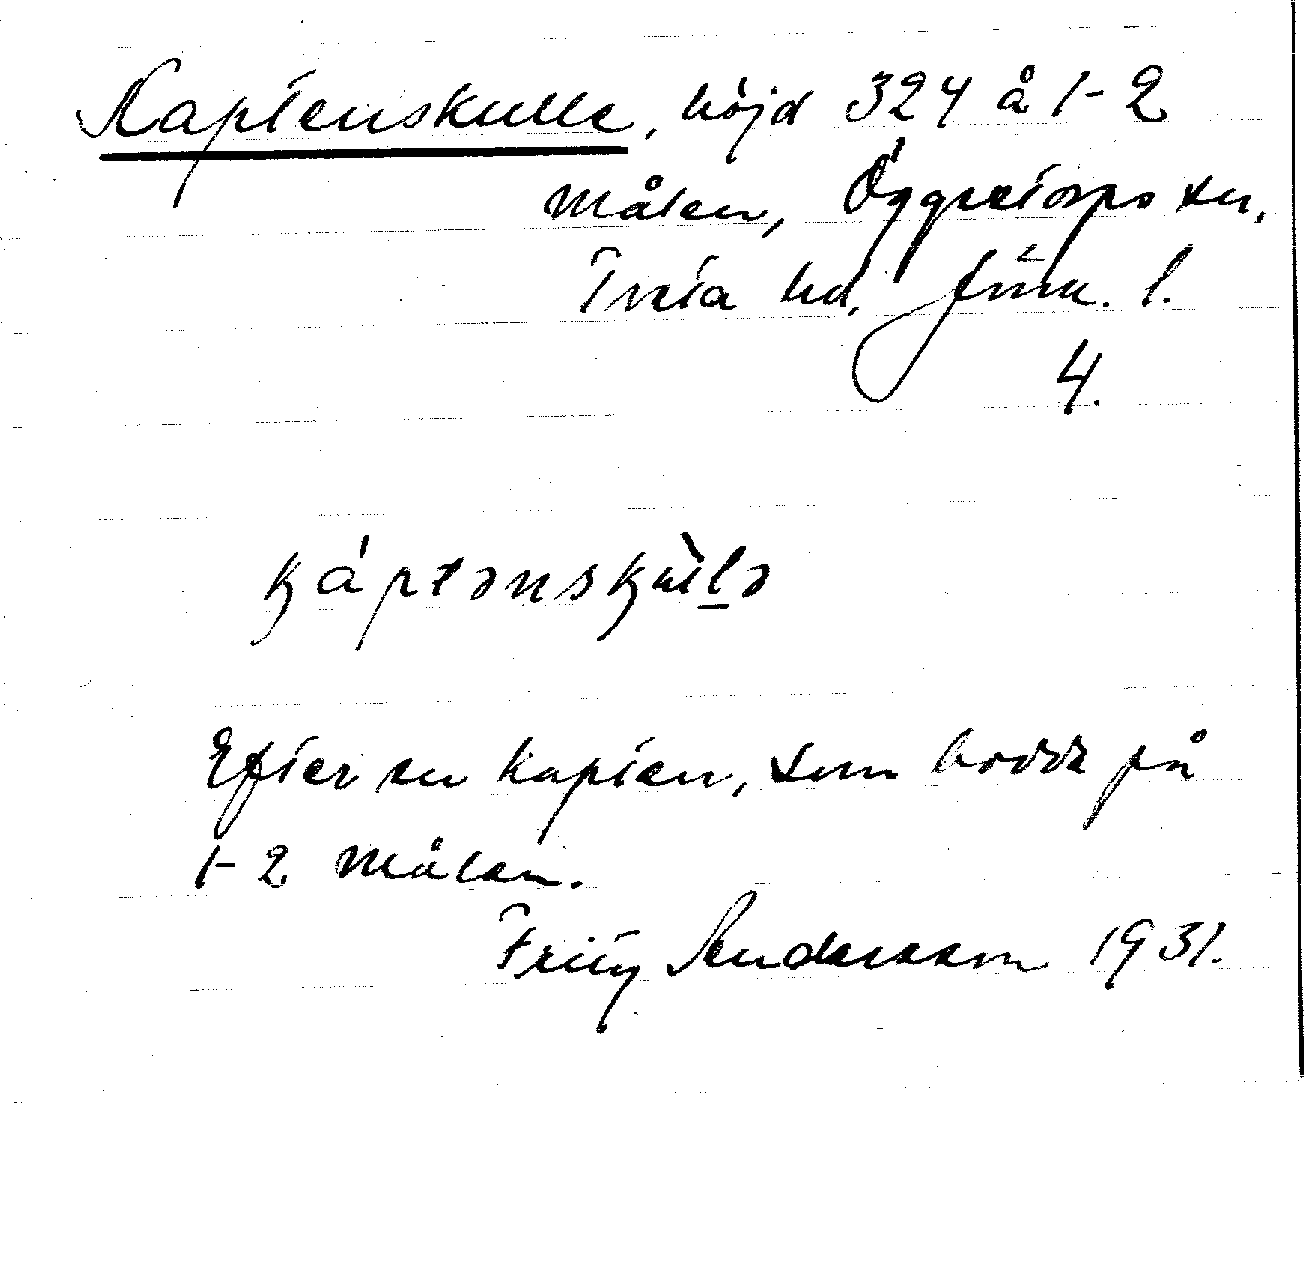 Kaptenskulle, höjd 324 å 1-2
Målen, Öggestorps sn,
Tveta hd, Jönk. l.
4.
káptənskùlə
Efter en kapten, som bodde på
1-2 Målen.
Fritz Andersson 1931.